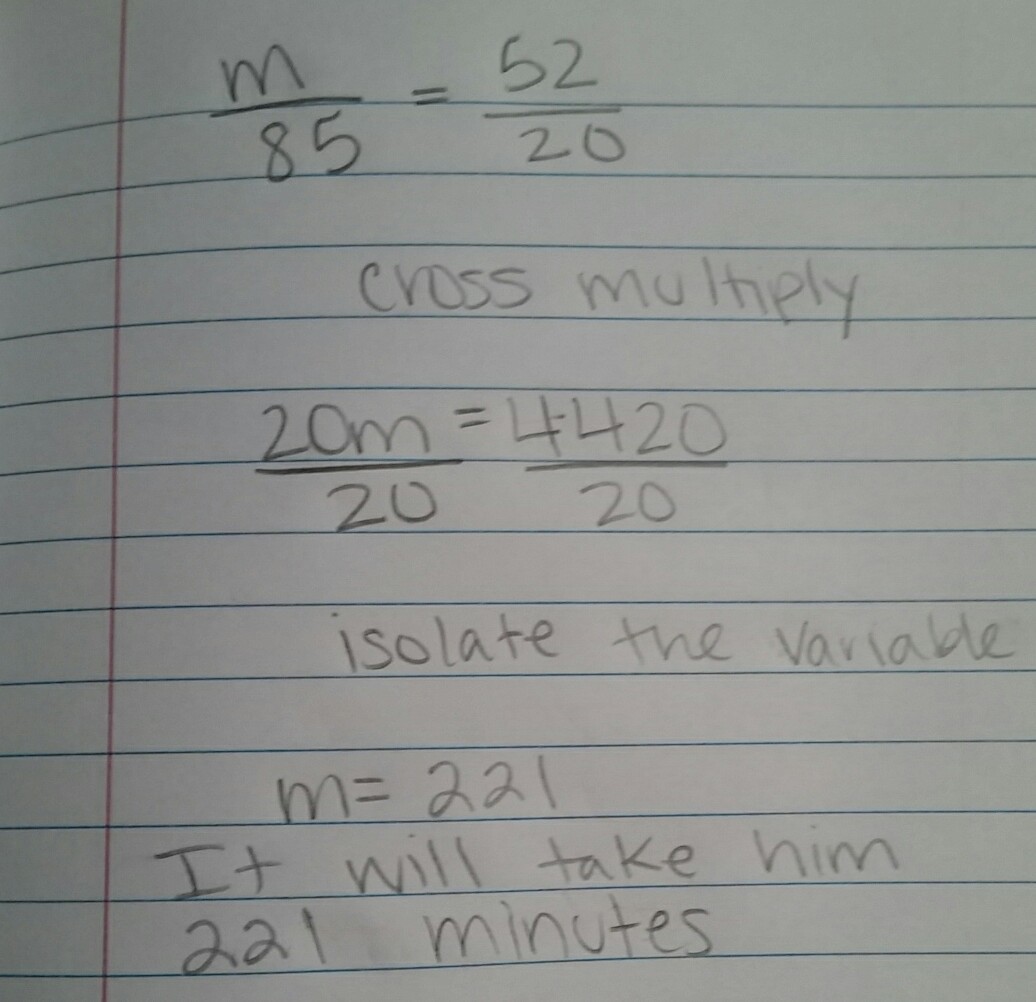 m/85 = 52/20
cross multiply
20m/20 = 4420/20
isolate the variable
m= 221
It will take him
221 minutes